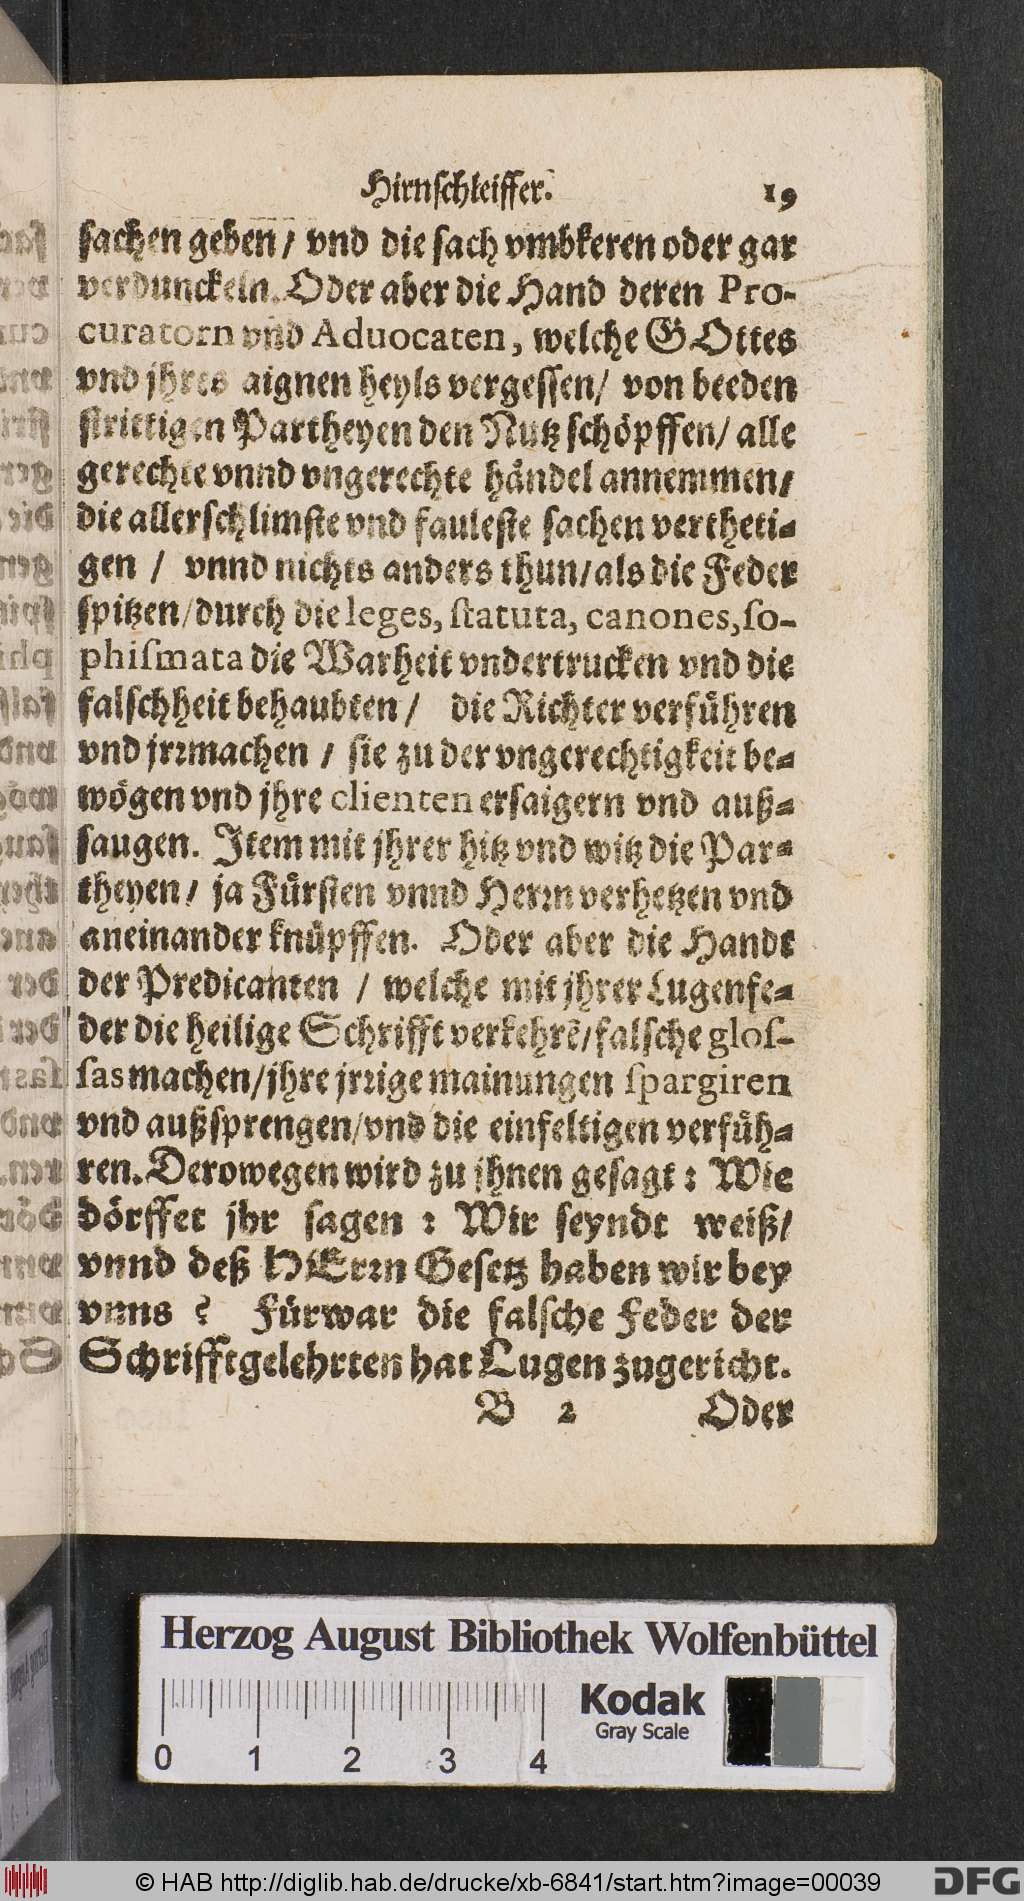 Hirnschleiffer. 19
sachen geben / vnd die sach vmbkeren oder gar
verdunckeln. Oder aber die Hand deren Pro-
curatorn vnd Aduocaten, welche GOttes
vnd jhres aignen heyls vergessen / von beeden
strittigen Partheyen den Nutz schöpffen / alle
gerechte vnnd vngerechte händel annemmen /
die allerschlimste vnd fauleste sachen vertheti-
gen / vnnd nichts anders thun / als die Feder
spitzen / durch die leges, ſtatuta, canones, ſo-
phiſmata die Warheit vndertrucken vnd die
falschheit behaubten / die Richter verführen
vnd jrrmachen / sie zu der vngerechtigkeit be-
wögen vnd jhre clienten ersaigern vnd auß-
saugen. Item mit jhrer hitz vnd witz die Par-
theyen / ja Fürsten vnnd Herrn verhetzen vnd
aneinander knüpffen. Oder aber die Handt
der Predicanten / welche mit jhrer Lugenfe-
der die heilige Schrifft verkehrẽ / falsche gloſ-
ſas machen / jhre jrrige mainungen ſpargiren
vnd außsprengen / vnd die einfeltigen verfüh-
ren. Derowegen wird zu jhnen gesagt: Wie
dörffet jhr sagen: Wir seyndt weiß /
vnnd deß HErrn Gesetz haben wir bey
vnns? Fürwar die falsche Feder der
Schrifftgelehrten hat Lugen zugericht.
B 2 Oder
Herzog August Bibliothek Wolfenbüttel
Kodak
Gray Scale
0 1 2 3 4
© HAB http://diglib.hab.de/drucke/xb-6841/start.htm?image=00039
DFG